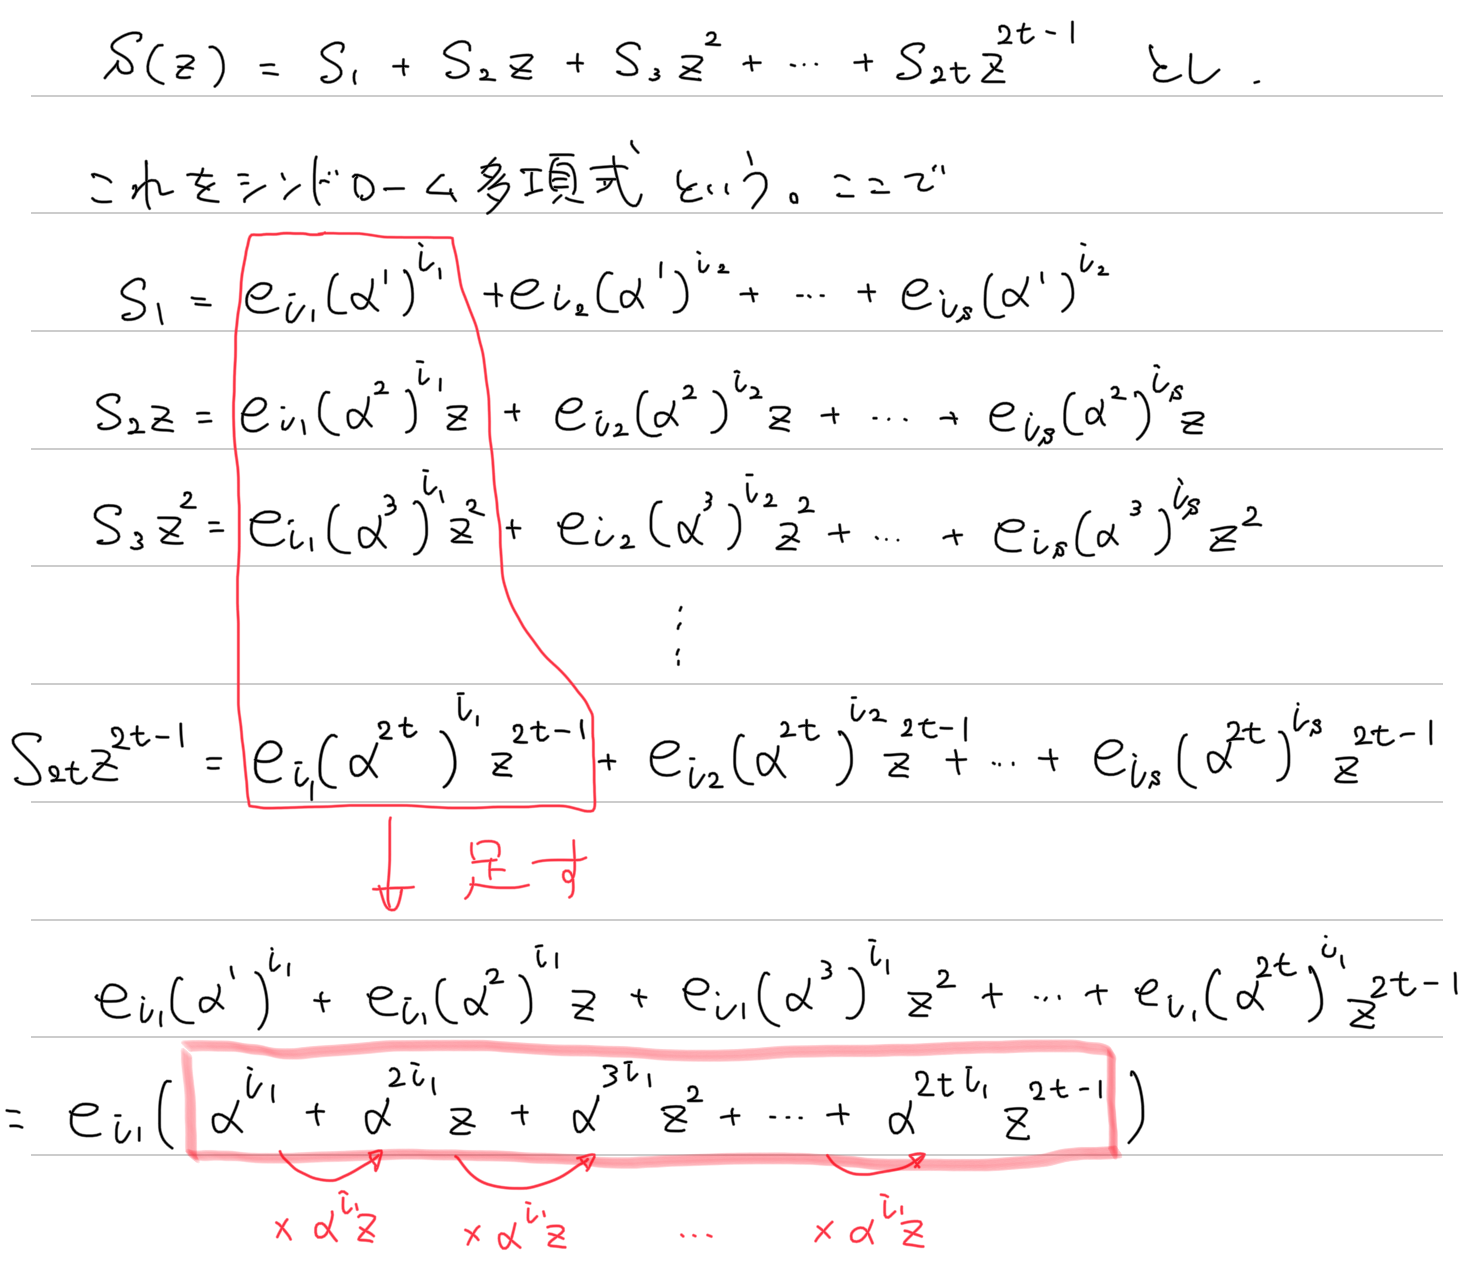 S(z) = S₁ + S₂z + S₃z² + … + S₂ₜz^{2t-1} とし.
これをシンドローム多項式という。ここで
S₁ = e_{i₁}(α¹)^{i₁} + e_{i₂}(α¹)^{i₂} + … + e_{i_s}(α¹)^{i₂}
S₂z = e_{i₁}(α²)^{i₁}z + e_{i₂}(α²)^{i₂}z + … + e_{i_s}(α²)^{i_s}z
S₃z² = e_{i₁}(α³)^{i₁}z² + e_{i₂}(α³)^{i₂}z² + … + e_{i_s}(α³)^{i_s}z²
⋮
S₂ₜz^{2t-1} = e_{i₁}(α^{2t})^{i₁}z^{2t-1} + e_{i₂}(α^{2t})^{i₂}z^{2t-1} + … + e_{i_s}(α^{2t})^{i_s}z^{2t-1}
↓ 足す
e_{i₁}(α¹)^{i₁} + e_{i₁}(α²)^{i₁}z + e_{i₁}(α³)^{i₁}z² + … + e_{i₁}(α^{2t})^{i₁}z^{2t-1}
= e_{i₁}(α^{i₁} + α^{2i₁}z + α^{3i₁}z² + … + α^{2ti₁}z^{2t-1})
×α^{i₁}z ×α^{i₁}z … ×α^{i₁}z